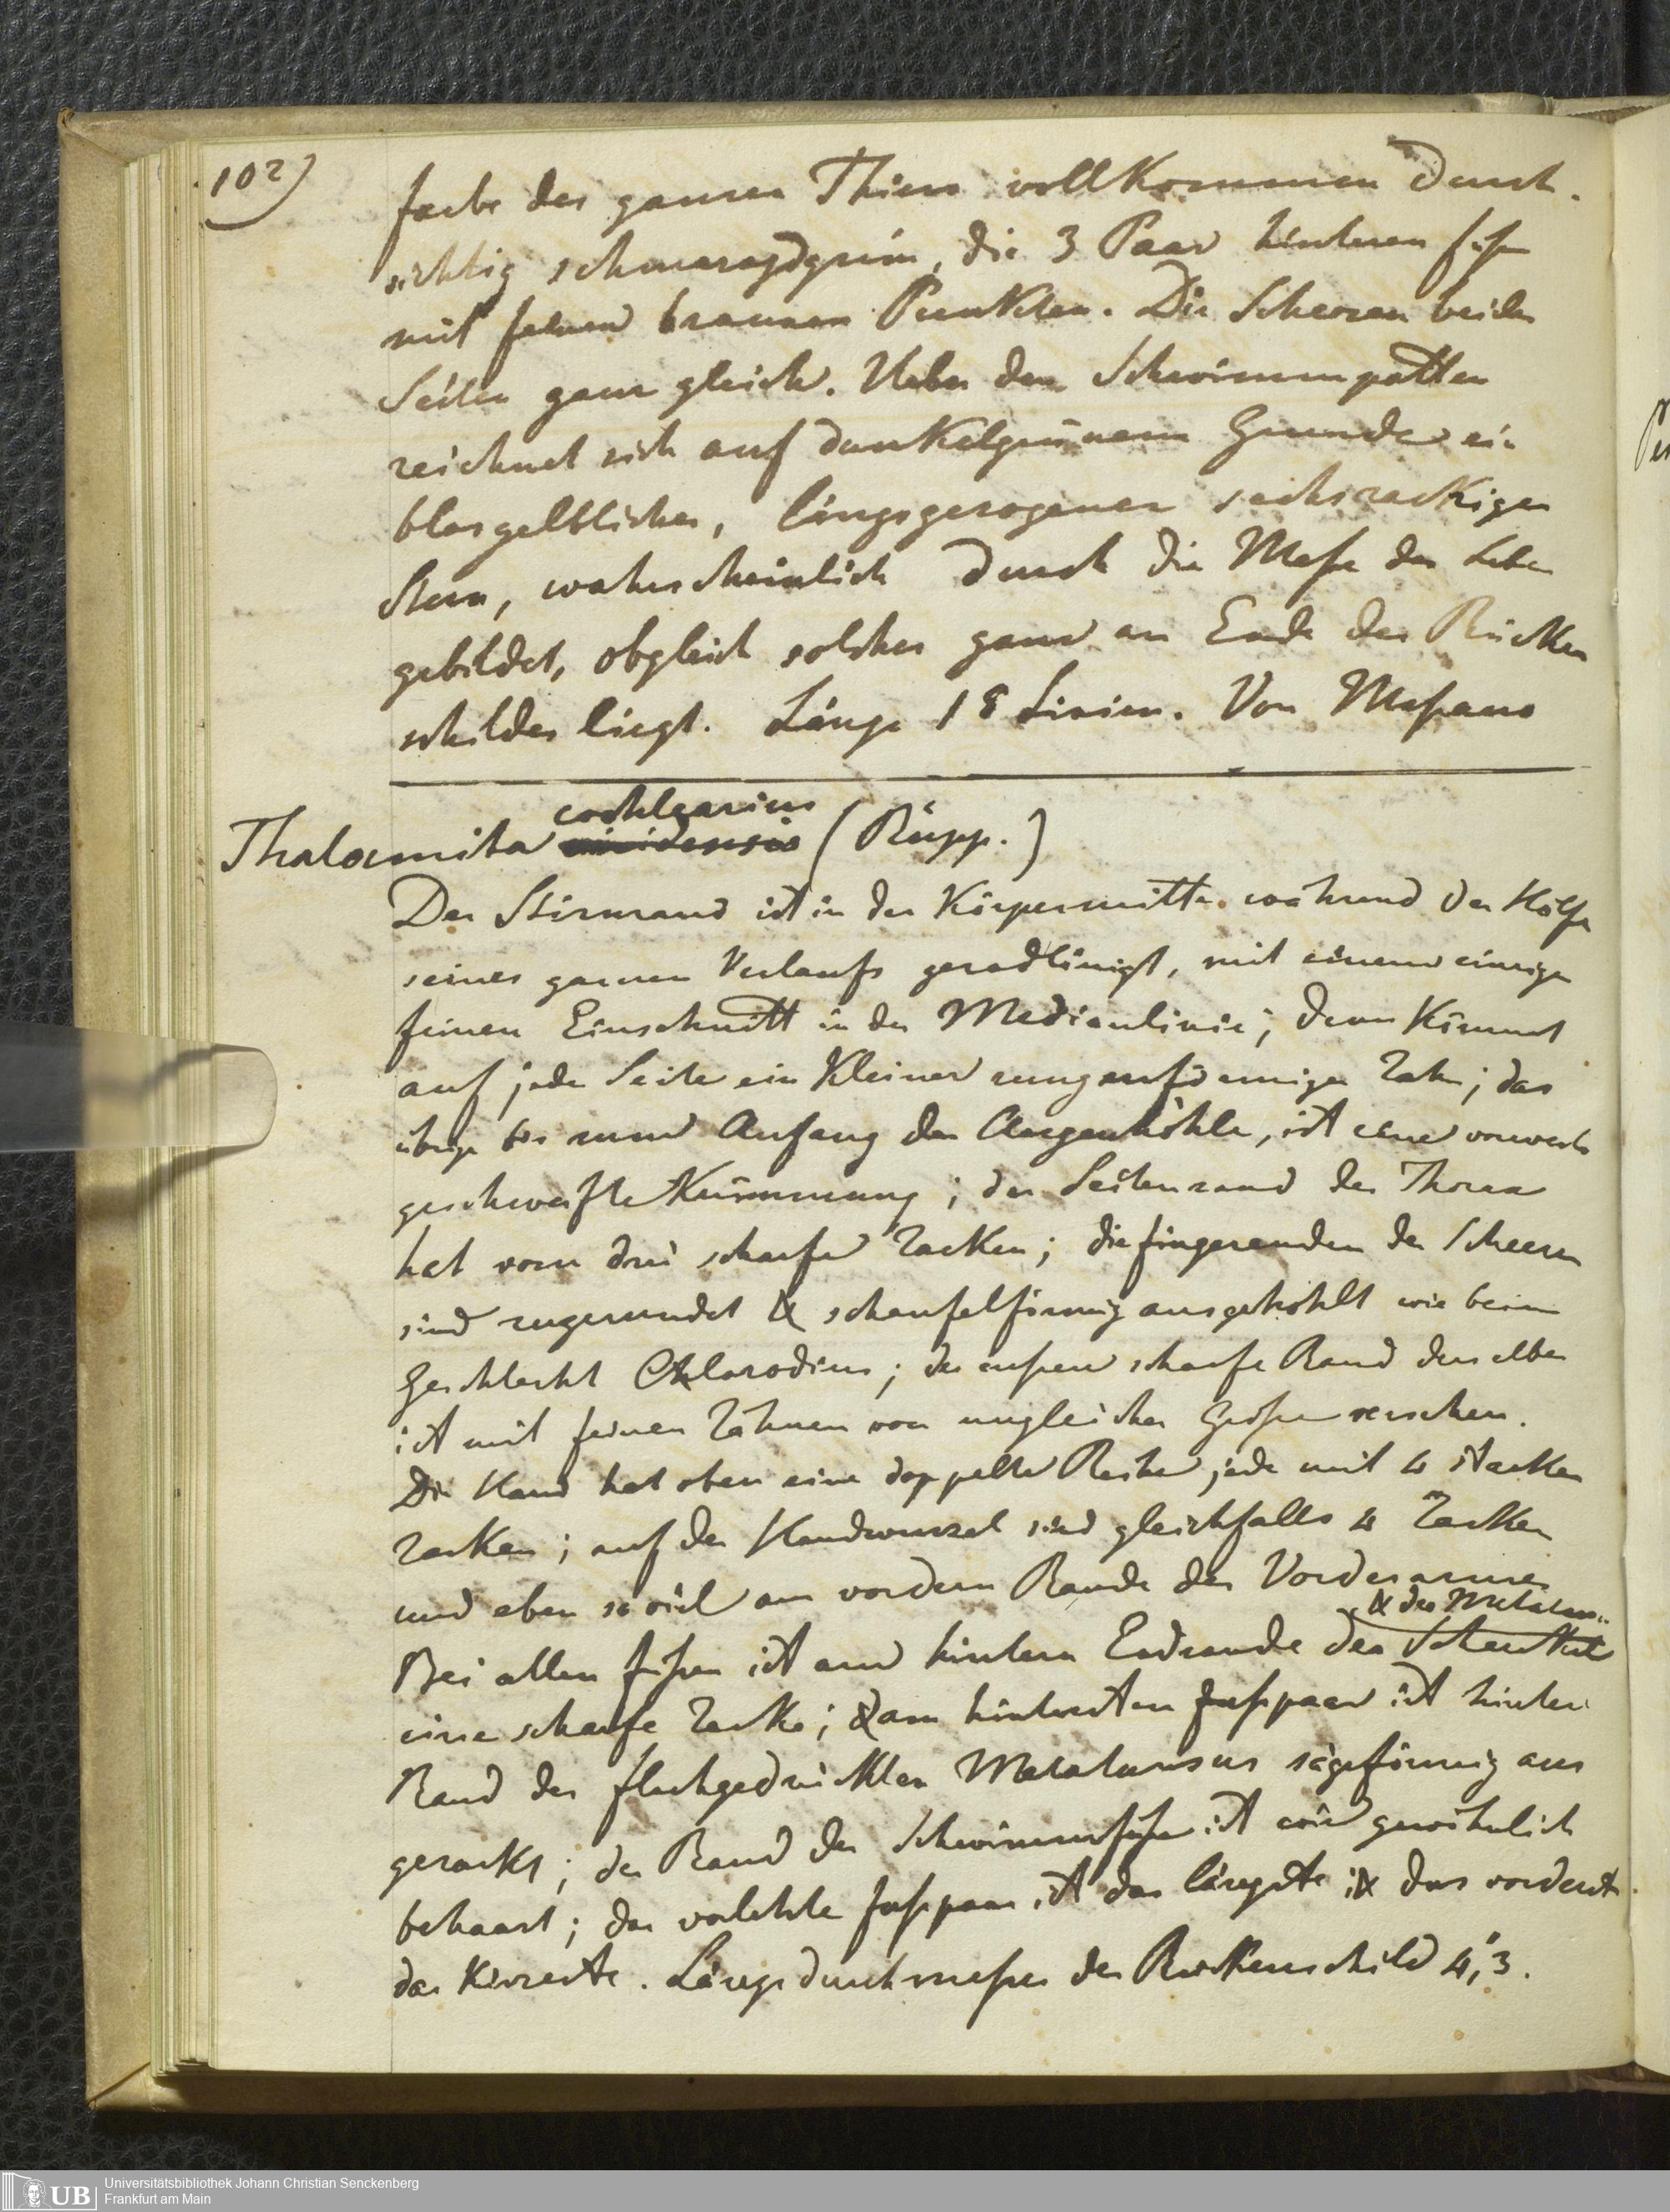 102)
farbe des ganzen Thiers vollkommen durch-
sichtig schmaragdgrün, die 3 Paar hinteren füße
mit feinen braunen Punkten. Die Scheeren beider
Seiten ganz gleich. Ueber den Schwimmpatten
zeichnet sich auf dunkelgrünem Grunde ein
blasgelblicher, längsgezogener sechszackiger
Stern, wahrscheinlich durch die Maße der Leber
gebildet, obgleich solcher ganz am Ende des Rücken
schildes liegt. Länge 18 Linien. Von
cochlearius
Thalamita (Rüpp.)
Der Stirnrand ist in der Körpermitte während der Hälfte
seines ganzen Verlaufs geradlinigt, mit einem einzigen
feinen Einschnitt in der Medianlinie; dann kömmt
auf jede Seite ein kleiner zungenförmiger Zahn; das
übrige bis zum Anfang der Augenhöhle, ist eine vorwerts
geschweifte Krümmung; der Seitenrand des Thorax
hat vorn drei scharfe Zacken; die fingerenden der Scheeren
sind zugerundet & schaufelförmig ausgehöhlt wie beim
Geschlecht Chlorodius; der scharfe Rand derselben
ist mit feinen Zähnen von ungleicher Größe versehen.
Die Hand hat oben eine doppelte Reihe jede mit 4 starken
Zacken; auf der Handwurzel sind gleichfalls 4 Zacken
und eben so viel am vordern Rande des Vorderarmes
& des Metatars..
Bei allen füßen ist am hintern Endrande des Schenkel
eine scharfe Zacke; & am hintersten fußpaar ist hinter
Rand des flachgedrückten Metatarsus sägeförmig aus
gezackt; der Rand der Schwimmfüße ist wie gewöhnlich
behaart; das vorletzte fußpaar ist das längste & das vorderste
das kürzeste. Längsdurchmeßer des Rückenschild 4,"3.
Universitätsbibliothek Johann Christian Senckenberg
UB Frankfurt am Main